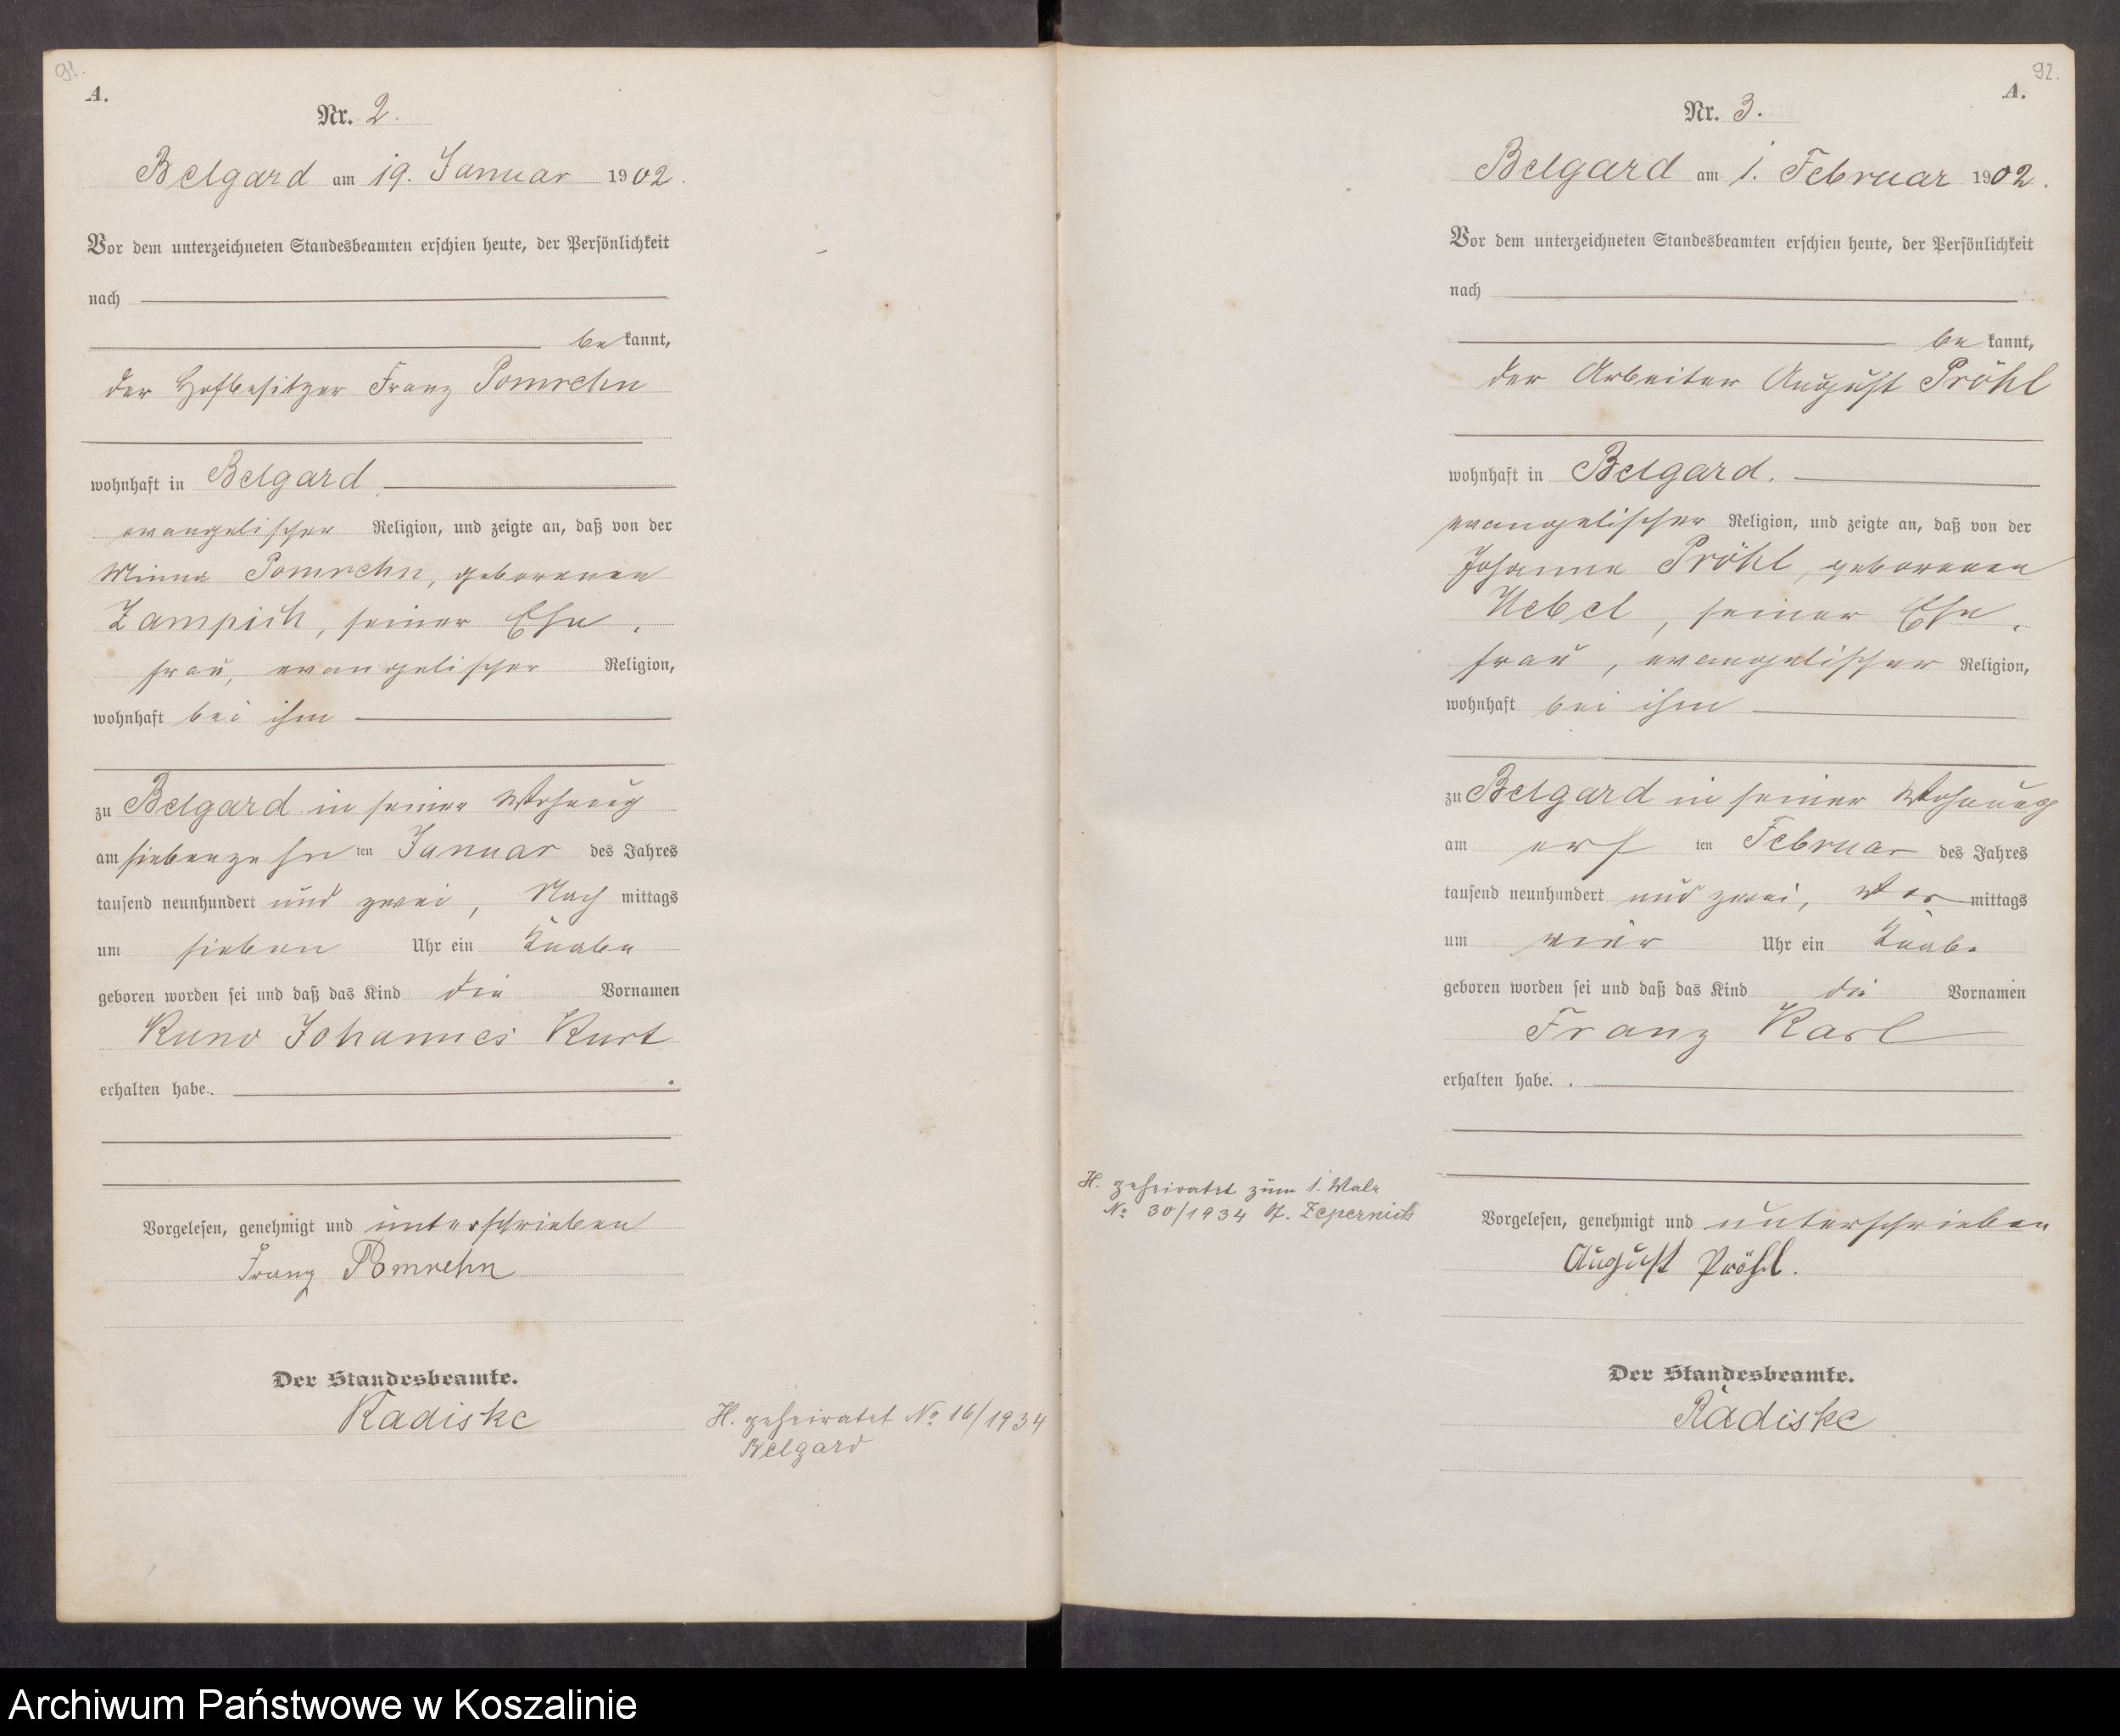 91.
A.
Nr. 2.
Belgard am 19. Januar 1902.
Vor dem unterzeichneten Standesbeamten erschien heute, der Persönlichkeit
nach
be kannt,
der Hofbesitzer Franz Pomrehn
wohnhaft in Belgard
evangelischer Religion, und zeigte an, daß von der
Minna Pomrehn, geborenen
Zampich, seiner Ehe
frau, evangelischer Religion,
wohnhaft bei ihm
zu Belgard in seiner Wohnung
am siebenzehn ten Januar des Jahres
tausend neunhundert und zwei, Nach mittags
um sieben Uhr ein Knabe
geboren worden sei und daß das Kind die Vornamen
Kuno Johannes Kurt
erhalten habe.
Vorgelesen, genehmigt und unterschrieben
Franz Pomrehn
Der Standesbeamte.
Radiske
H. geheiratet No 16/1934
Belgard
92.
A.
Nr. 3.
Belgard am 1. Februar 1902.
Vor dem unterzeichneten Standesbeamten erschien heute, der Persönlichkeit
nach
be kannt,
der Arbeiter August Pröhl
wohnhaft in Belgard.
evangelischer Religion, und zeigte an, daß von der
Johanna Pröhl, geborenen
Uebel, seiner Ehe
frau, evangelischer Religion,
wohnhaft bei ihm
zu Belgard in seiner Wohnung
am ers ten Februar des Jahres
tausend neunhundert und zwei, Vor mittags
um vier Uhr ein Knabe
geboren worden sei und daß das Kind die Vornamen
Franz Karl
erhalten habe.
H. geheiratet zum 1. Male
No 30/1934 Zepernick
Vorgelesen, genehmigt und unterschrieben
August Pröhl.
Der Standesbeamte.
Radiske
Archiwum Państwowe w Koszalinie